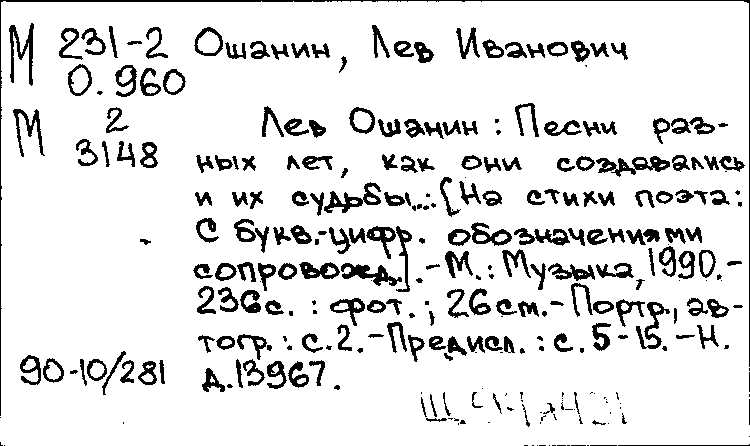 М 231-2 Ошанин, Лев Иванович
0.960
М 2 Лев Ошанин : Песни раз-
3148
ных лет, как они создавались
и их судьбы..: [На стихи поэта:
С букв.-цифр. обозначениями
сопровожд.]. -М.: Музыка, 1990.-
236с. : фот. ; 26 см.- Портр., ав-
тогр. : с.2.-Предисл. : с. 5-15. -Н.
90-10/281 д.13967.